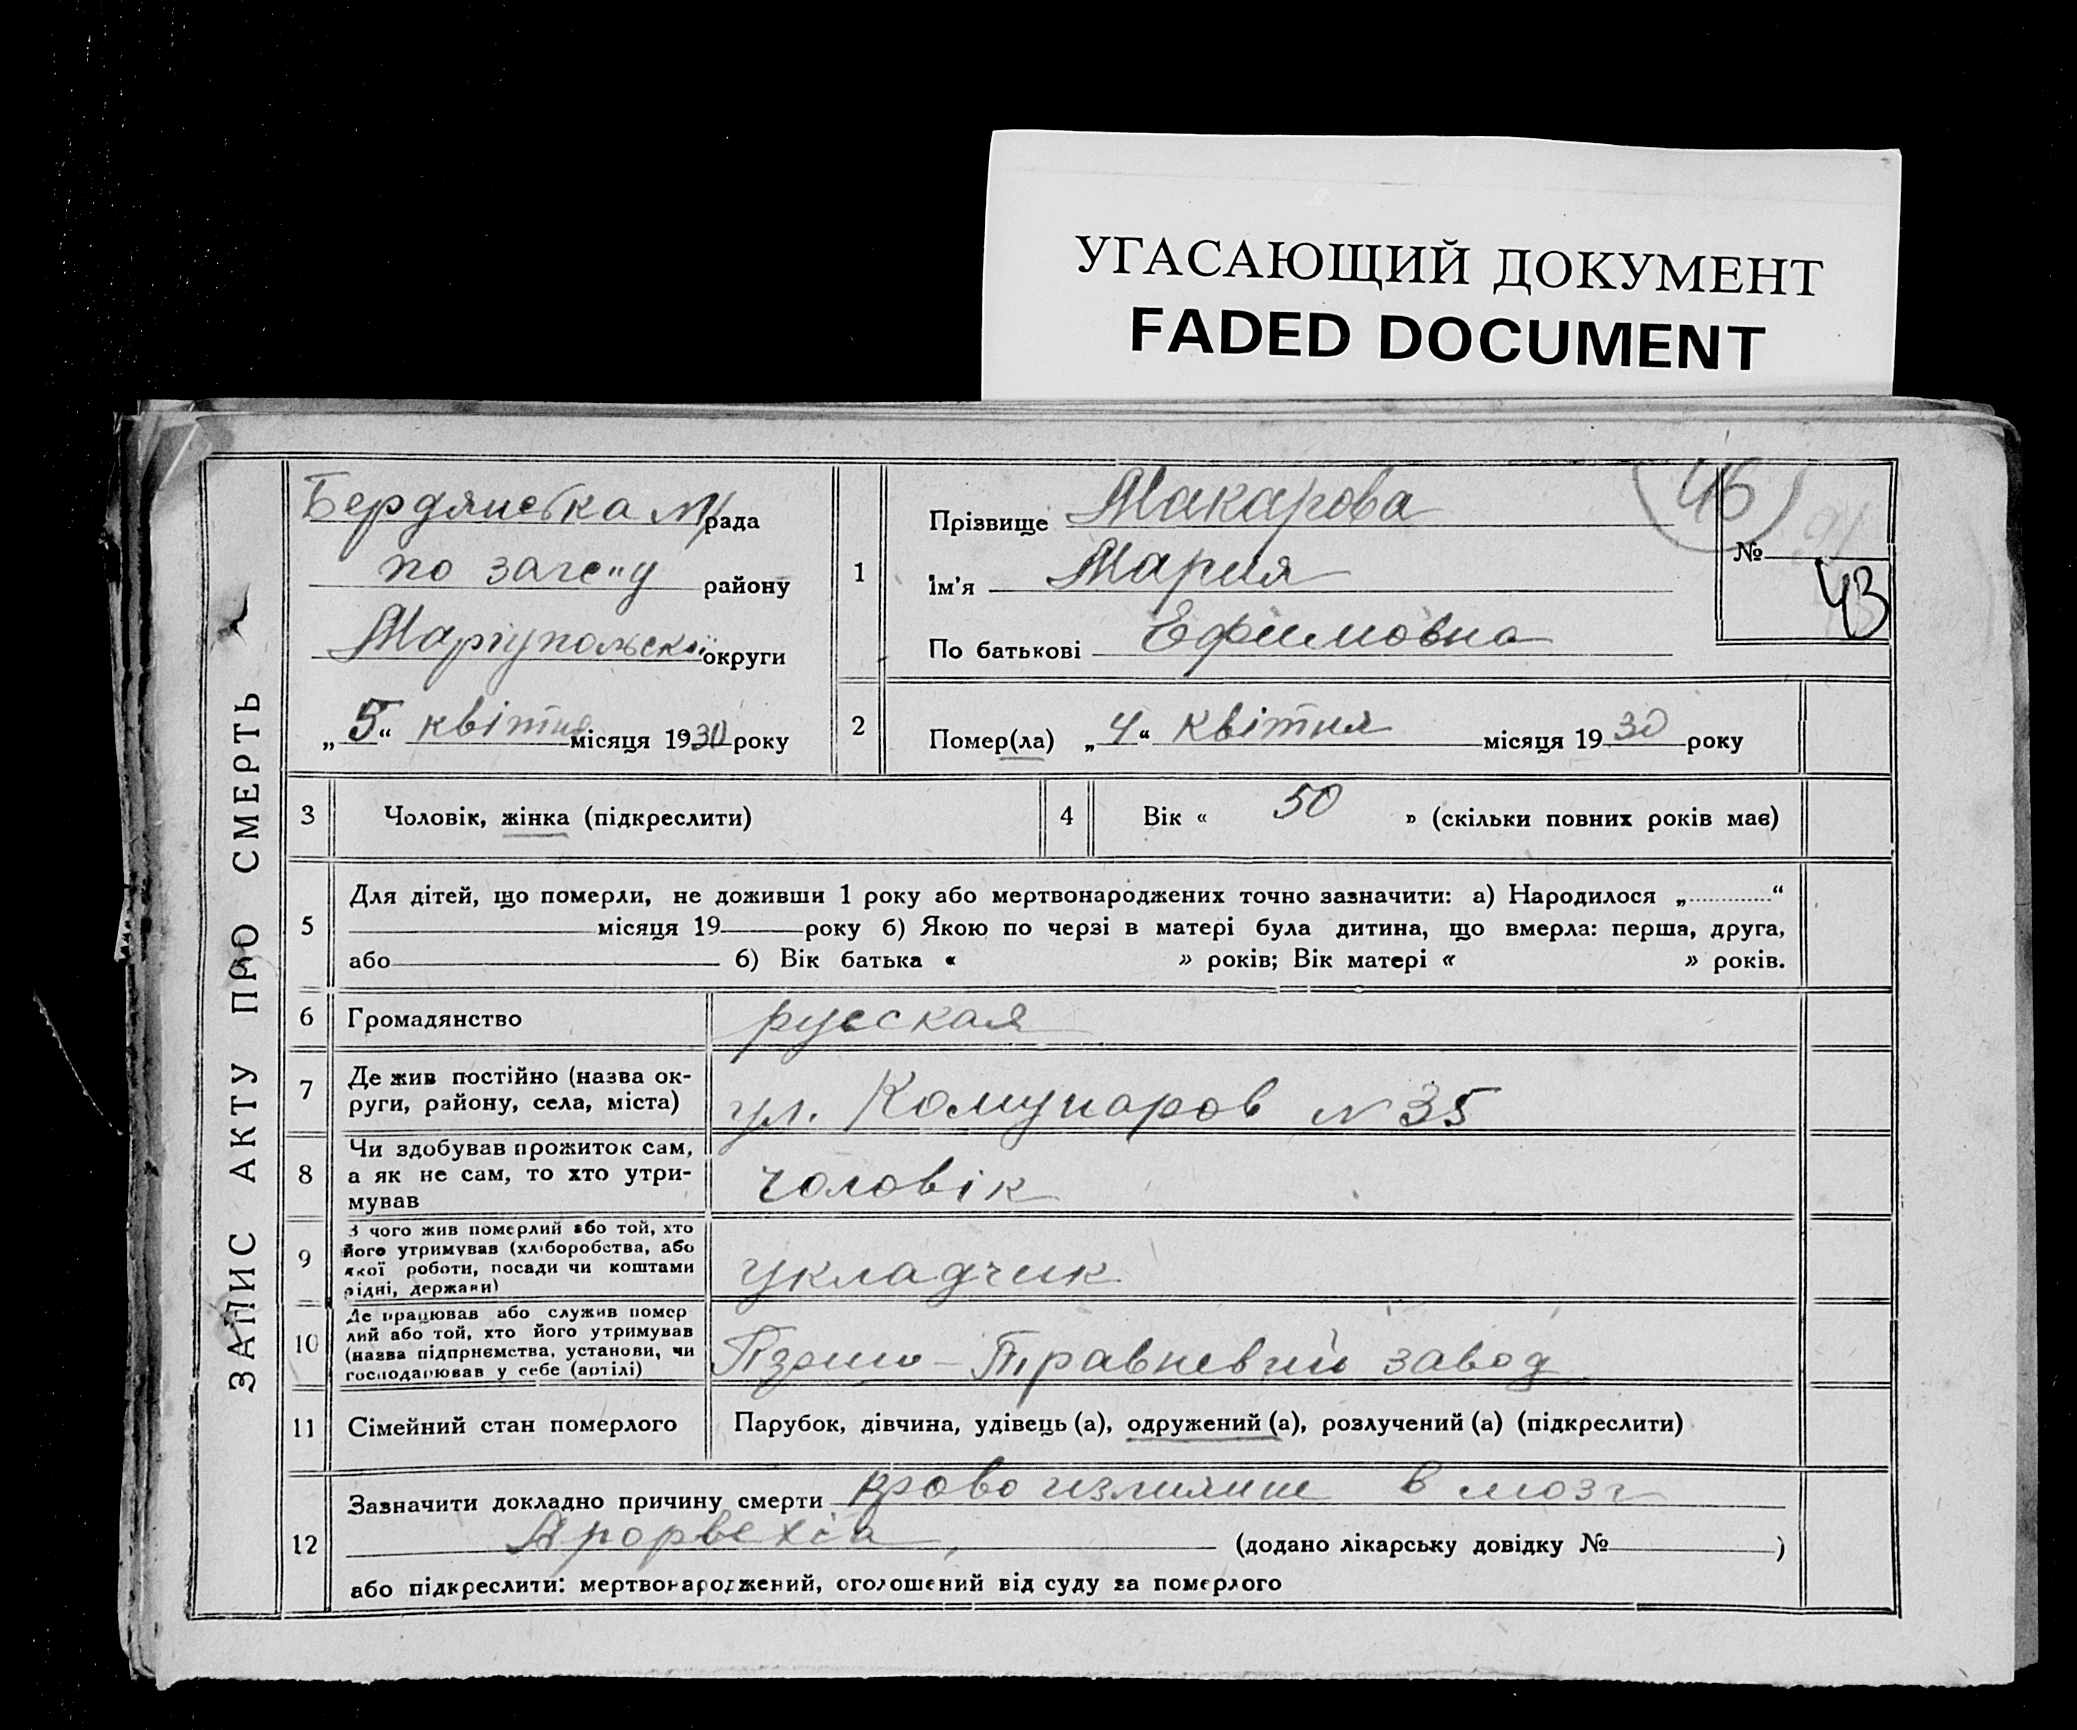 УГАСАЮЩИЙ ДОКУМЕНТ
FADED DOCUMENT
ЗАПИС АКТУ ПРО СМЕРТЬ
Бердянська м/рада
по загсу району
Маріупольскої округи
„5“ квітня місяця 1930 року
46
№
43
1
Прізвище Макарова
Ім'я Мария
По батькові Ефимовна
2
Помер(ла) „4“ квітня місяця 1930 року
3 Чоловік, жінка (підкреслити)
4 Вік « 50 » (скільки повних років має)
5
Для дітей, що померли, не доживши 1 року або мертвонароджених точно зазначити: а) Народилося „ “
місяця 19 року б) Якою по черзі в матері була дитина, що вмерла: перша, друга,
або б) Вік батька « » років; Вік матері « » років.
6 Громадянство русская
7 Де жив постійно (назва ок-
руги, району, села, міста) ул. Комунаров N 35
8 Чи здобував прожиток сам,
а як не сам, то хто утри-
мував чоловік
9 З чого жив померлий або той, хто
його утримував (хліборобства, або
якої роботи, посади чи коштами
рідні, держави) укладчик
10 Де працював або служив помер
лий або той, хто його утримував
(назва підприємства, установи, чи
господарював у себе (артілі) Травневий завод
11 Сімейний стан померлого Парубок, дівчина, удівець (а), одружений (а), розлучений (а) (підкреслити)
12
Зазначити докладно причину смерти кровоизлияние в мозг
(додано лікарську довідку № )
або підкреслити: мертвонароджений, оголошений від суду за померлого